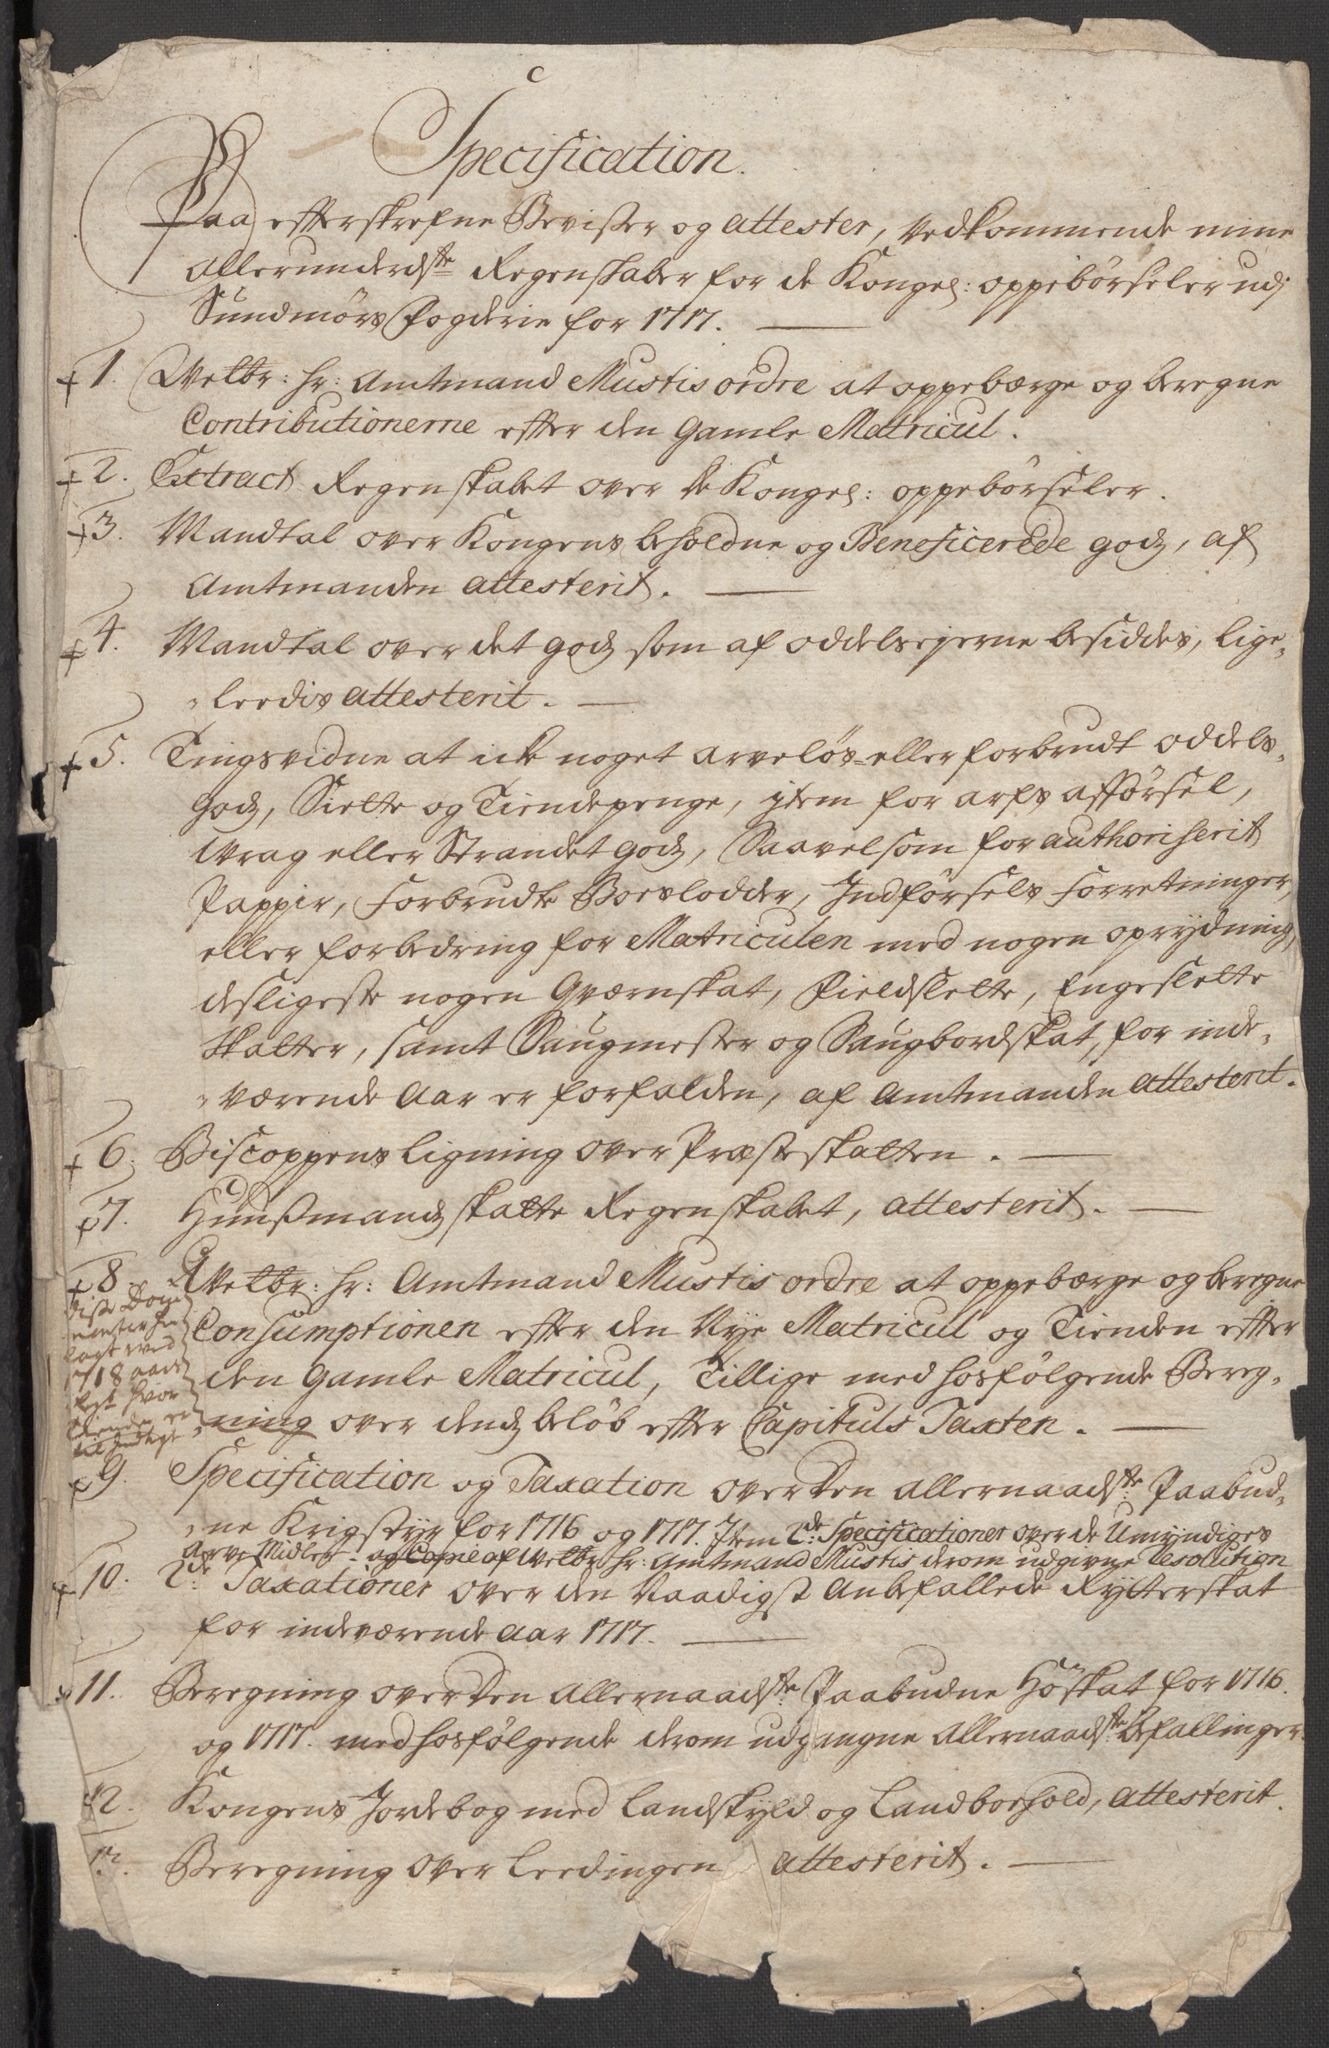 Specification.
Paa efterskrefne Bevißer og attester, Vedkommende mine
Allerunderdste Regenskaber for de Kongel: oppebörseler udj
Sundmörs Fogderie for 1717.
1. Welbr: hr: Amtmand Mustis ordre at oppebærge og beregne
Contributionerne efter den gamle Matricul.
2. Extract Regenskabet over de Kongel: oppebörseler.
3. Mandtal over Kongens beholdne og Beneficerede godz, af
Amtmanden attesterit.
4. Mandtal over det godz som af oddelsejerne besiddes, lige-
leedis attesterit.
5. Tingsvidne at icke noget arvelös- eller forbrudt oddels-
godz, Siette og Tiendepenge, jtem for arfs afförsel,
Vrag eller Strandet godz, Saavelsom for authoriserit
Pappir, forbrudte Boeslodder, Indförsels forretninger,
eller forbedring for Matriculen med nogen oprydning,
desligeste nogen Qværnskat, Fieldslette, Engeslette
skatter, samt Saugmester og Saugbordskat, for inde-
værende Aar er forfalden, af Amtmanden attesterit.
6. Biscoppens ligning over Præsteskatten.
7. Huußmandz skatte Regenskabet, attesterit.
8. Welbr: hr: Amtmand Mustis ordre at oppebærge og beregne
Consumptionen efter den Nye Matricul og Tienden efter
den gamle Matricul, Tillige med hosfölgende Bereg-
ning over dendz belöb efter Capituls Taxten.
diße Docu
menter
lagt ved
1718 aars
Regsk hvor
9. Specification og Taxation over den allernaadste Paabud-
ne Krigstyr for 1716 og 1717. Item 2de Specificationer over de Umyndiges
Arve Midler - og Copie af Welbr: hr: Amtmand Mustis derom udgivne Resolution
10. 2de Taxationer over den Naadigst Anbefallede Rytterskat
for indeværende Aar 1717.
11. Beregning over den allernaadste Paabudne Höskat for 1716.
og 1717. med hosfölgende derom udgangne Allernaadste befallinger.
12. Kongens Jordebog med landskyld og landboehold, attesterit.
13. Beregning over leedingen attesterit.